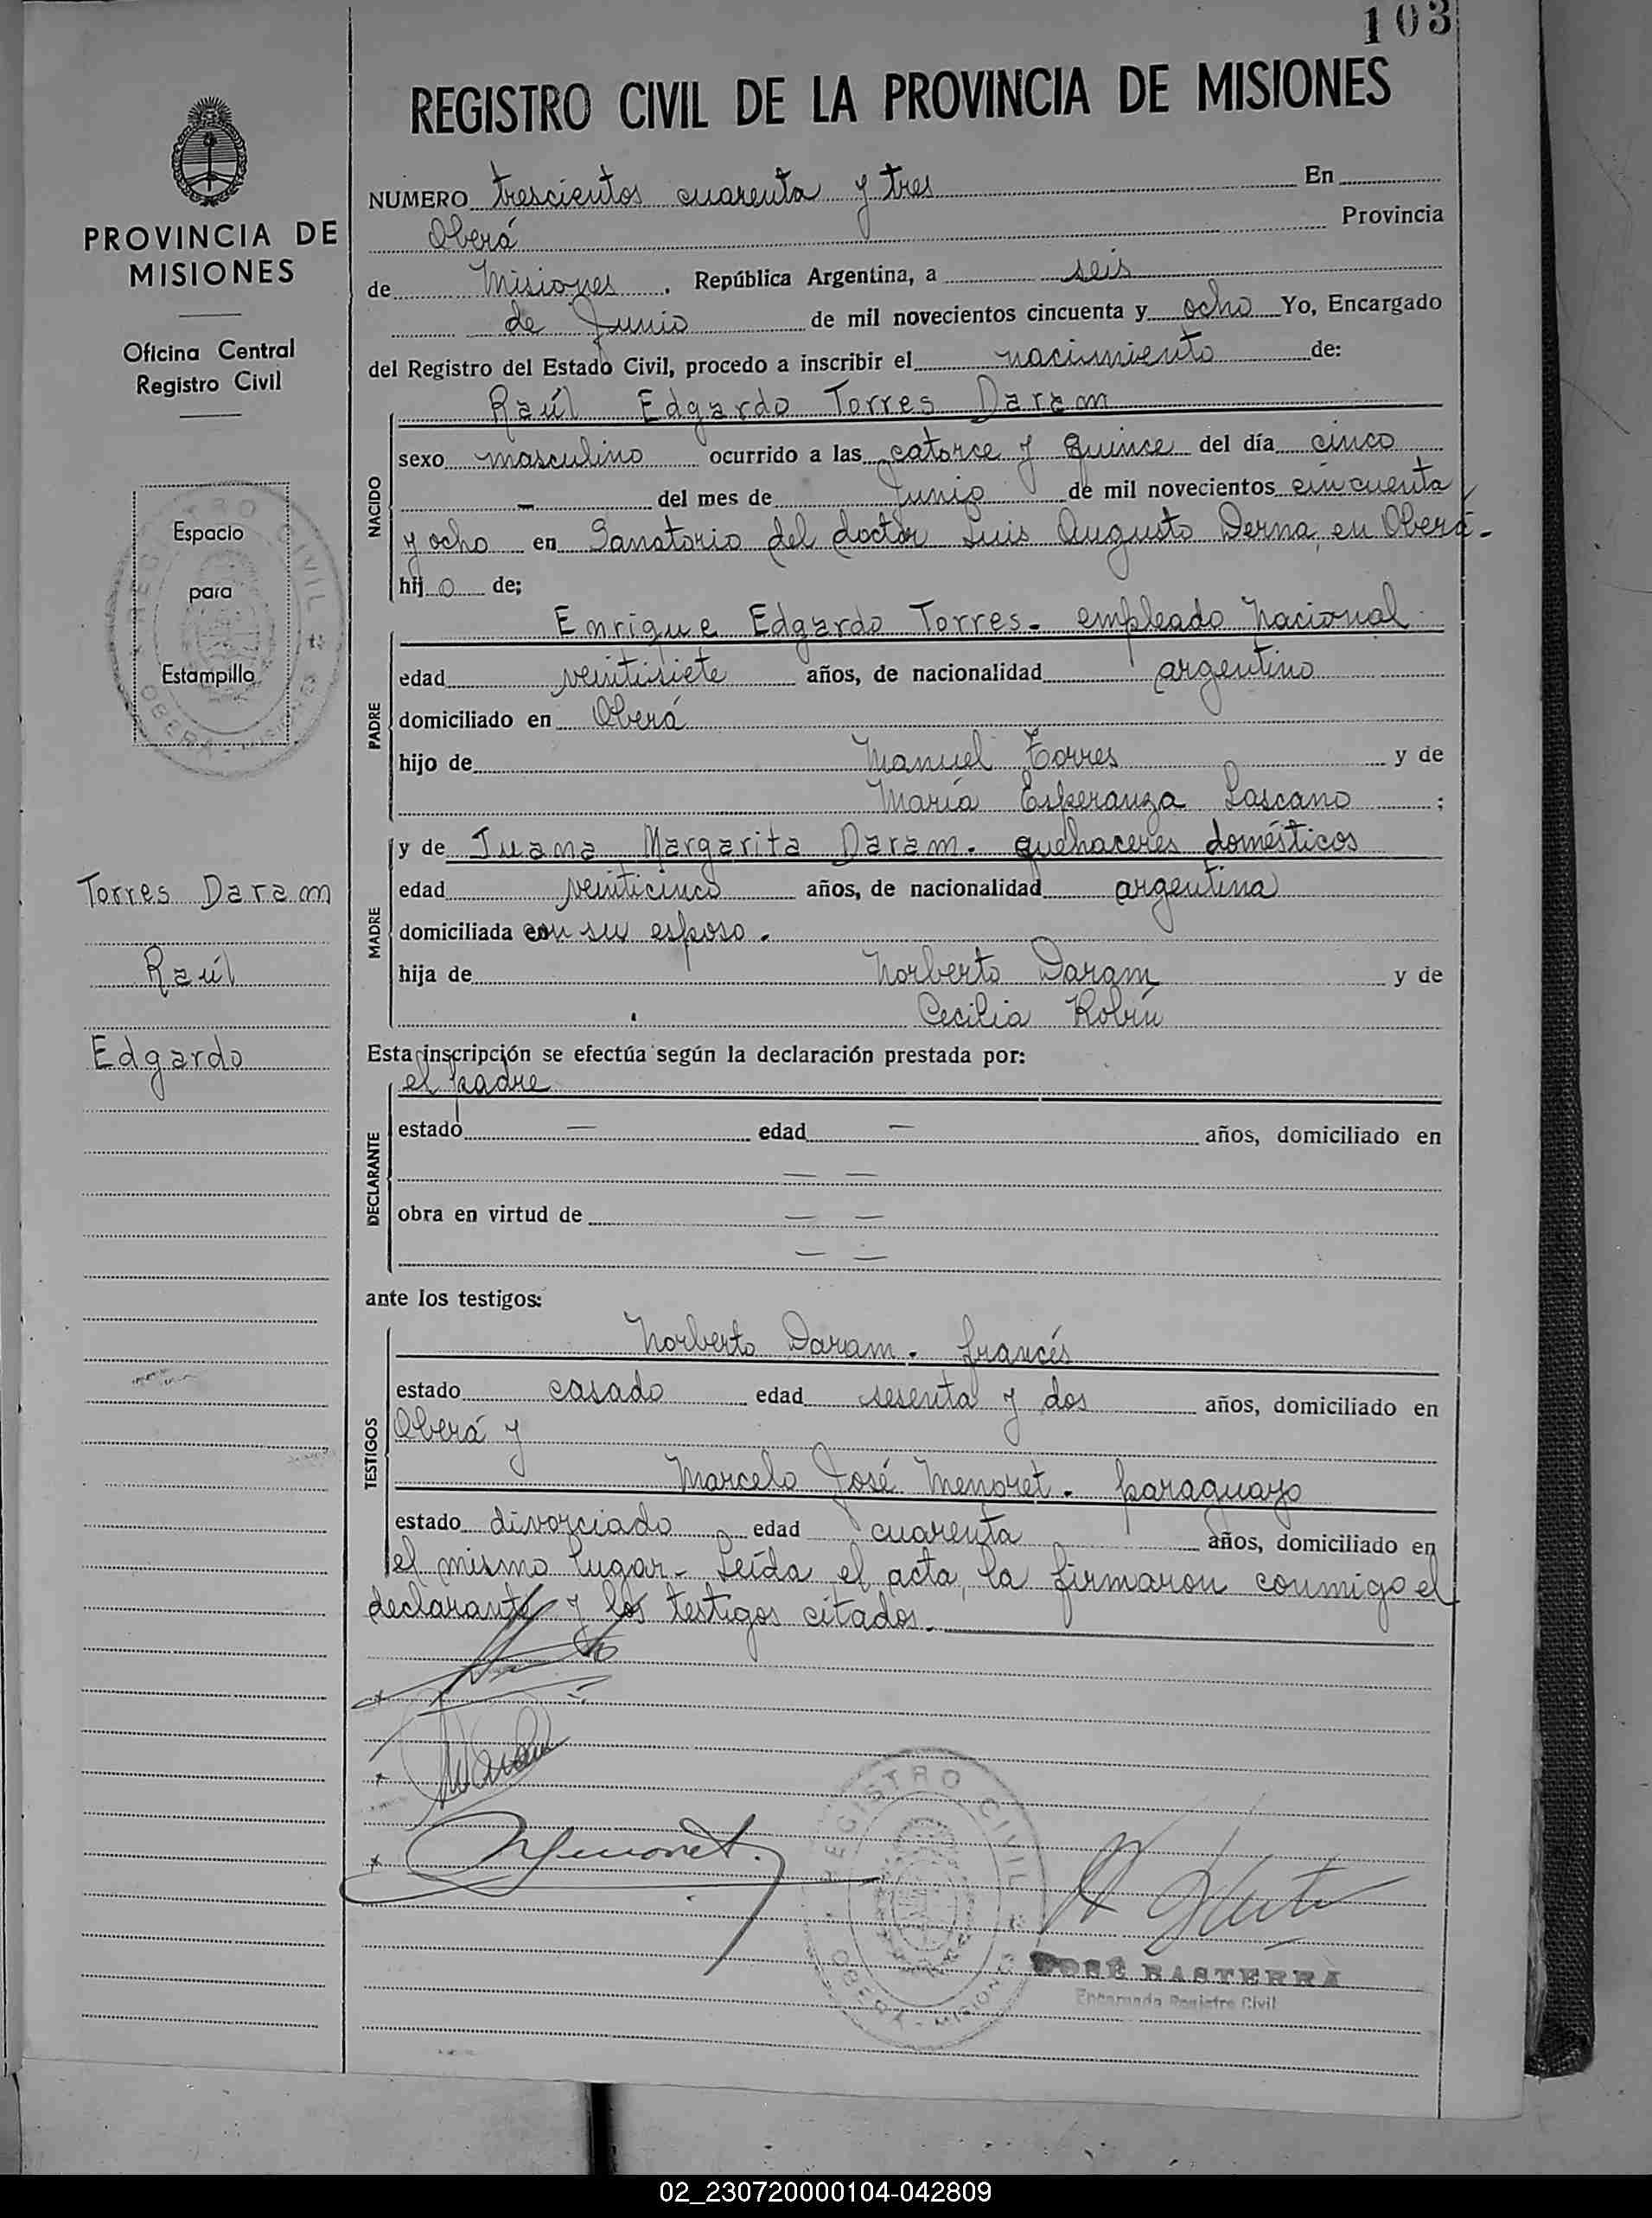 103
REGISTRO CIVIL DE LA PROVINCIA DE MISIONES
PROVINCIA DE
MISIONES
Oficina Central
Registro Civil
Espacio
para
Estampillo
REGISTRO CIVIL
OBERÁ - MISIONES
Torres Daram
Raúl
Edgardo
NUMERO trescientos cuarenta y tres En
Oberá Provincia
de Misiones, República Argentina, a seis
de Junio de mil novecientos cincuenta y ocho Yo, Encargado
del Registro del Estado Civil, procedo a inscribir el nacimiento de:
NACIDO
Raúl Edgardo Torres Daram
sexo masculino ocurrido a las catorce y quince del día cinco
— del mes de Junio de mil novecientos cincuenta
y ocho en Sanatorio del doctor Luis Augusto Derna, en Oberá-
hijo de;
PADRE
Enrique Edgardo Torres- empleado Nacional
edad veintisiete años, de nacionalidad argentino
domiciliado en Oberá
hijo de Manuel Torres y de
María Esperanza Lascano ;
MADRE
y de Juana Margarita Daram. quehaceres domésticos
edad veinticinco años, de nacionalidad argentina
domiciliada con su esposo.
hija de Norberto Daram y de
Cecilia Robín
Esta inscripción se efectúa según la declaración prestada por:
DECLARANTE
el padre
estado — edad — años, domiciliado en
— —
obra en virtud de — —
— —
ante los testigos:
TESTIGOS
Norberto Daram. francés
estado casado edad sesenta y dos años, domiciliado en
Oberá y
Marcelo José Menoret. paraguayo
estado divorciado edad cuarenta años, domiciliado en
el mismo lugar- Leída el acta, la firmaron conmigo el
declarante y los testigos citados.
Menoret.
REGISTRO CIVIL
OBERÁ - MISIONES
JOSÉ BASTERRA
Encargado Registro Civil
02_230720000104-042809